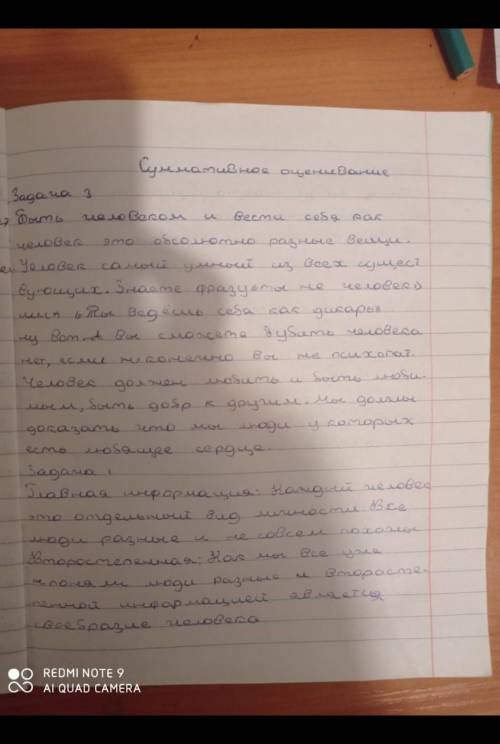 Суммативное оценивание
Задача 3
Быть человаком и вести себя как
человек это обсолютно разные вещи.
Человек самый умный из всех сущест
вующих. Знаете фразу "ты не человек"
или "Ты ведёшь себя как дикарь"
ну вот. А вы сможете убить человека
нет, если конечно вы не психопат.
Человек должен любить и быть люби-
мым, быть добр к другим. Мы должны
доказать что мы люди у которых
есть любящее сердце.
Задача 1
Главная информация: Каждый человек
это отдельный вид личности. Все
люди разные и не совсем похожи
Второстепенная: Как мы все уже
поняли люди разные и второсте-
пенной информацией является
своебразие человека
REDMI NOTE 9
AI QUAD CAMERA